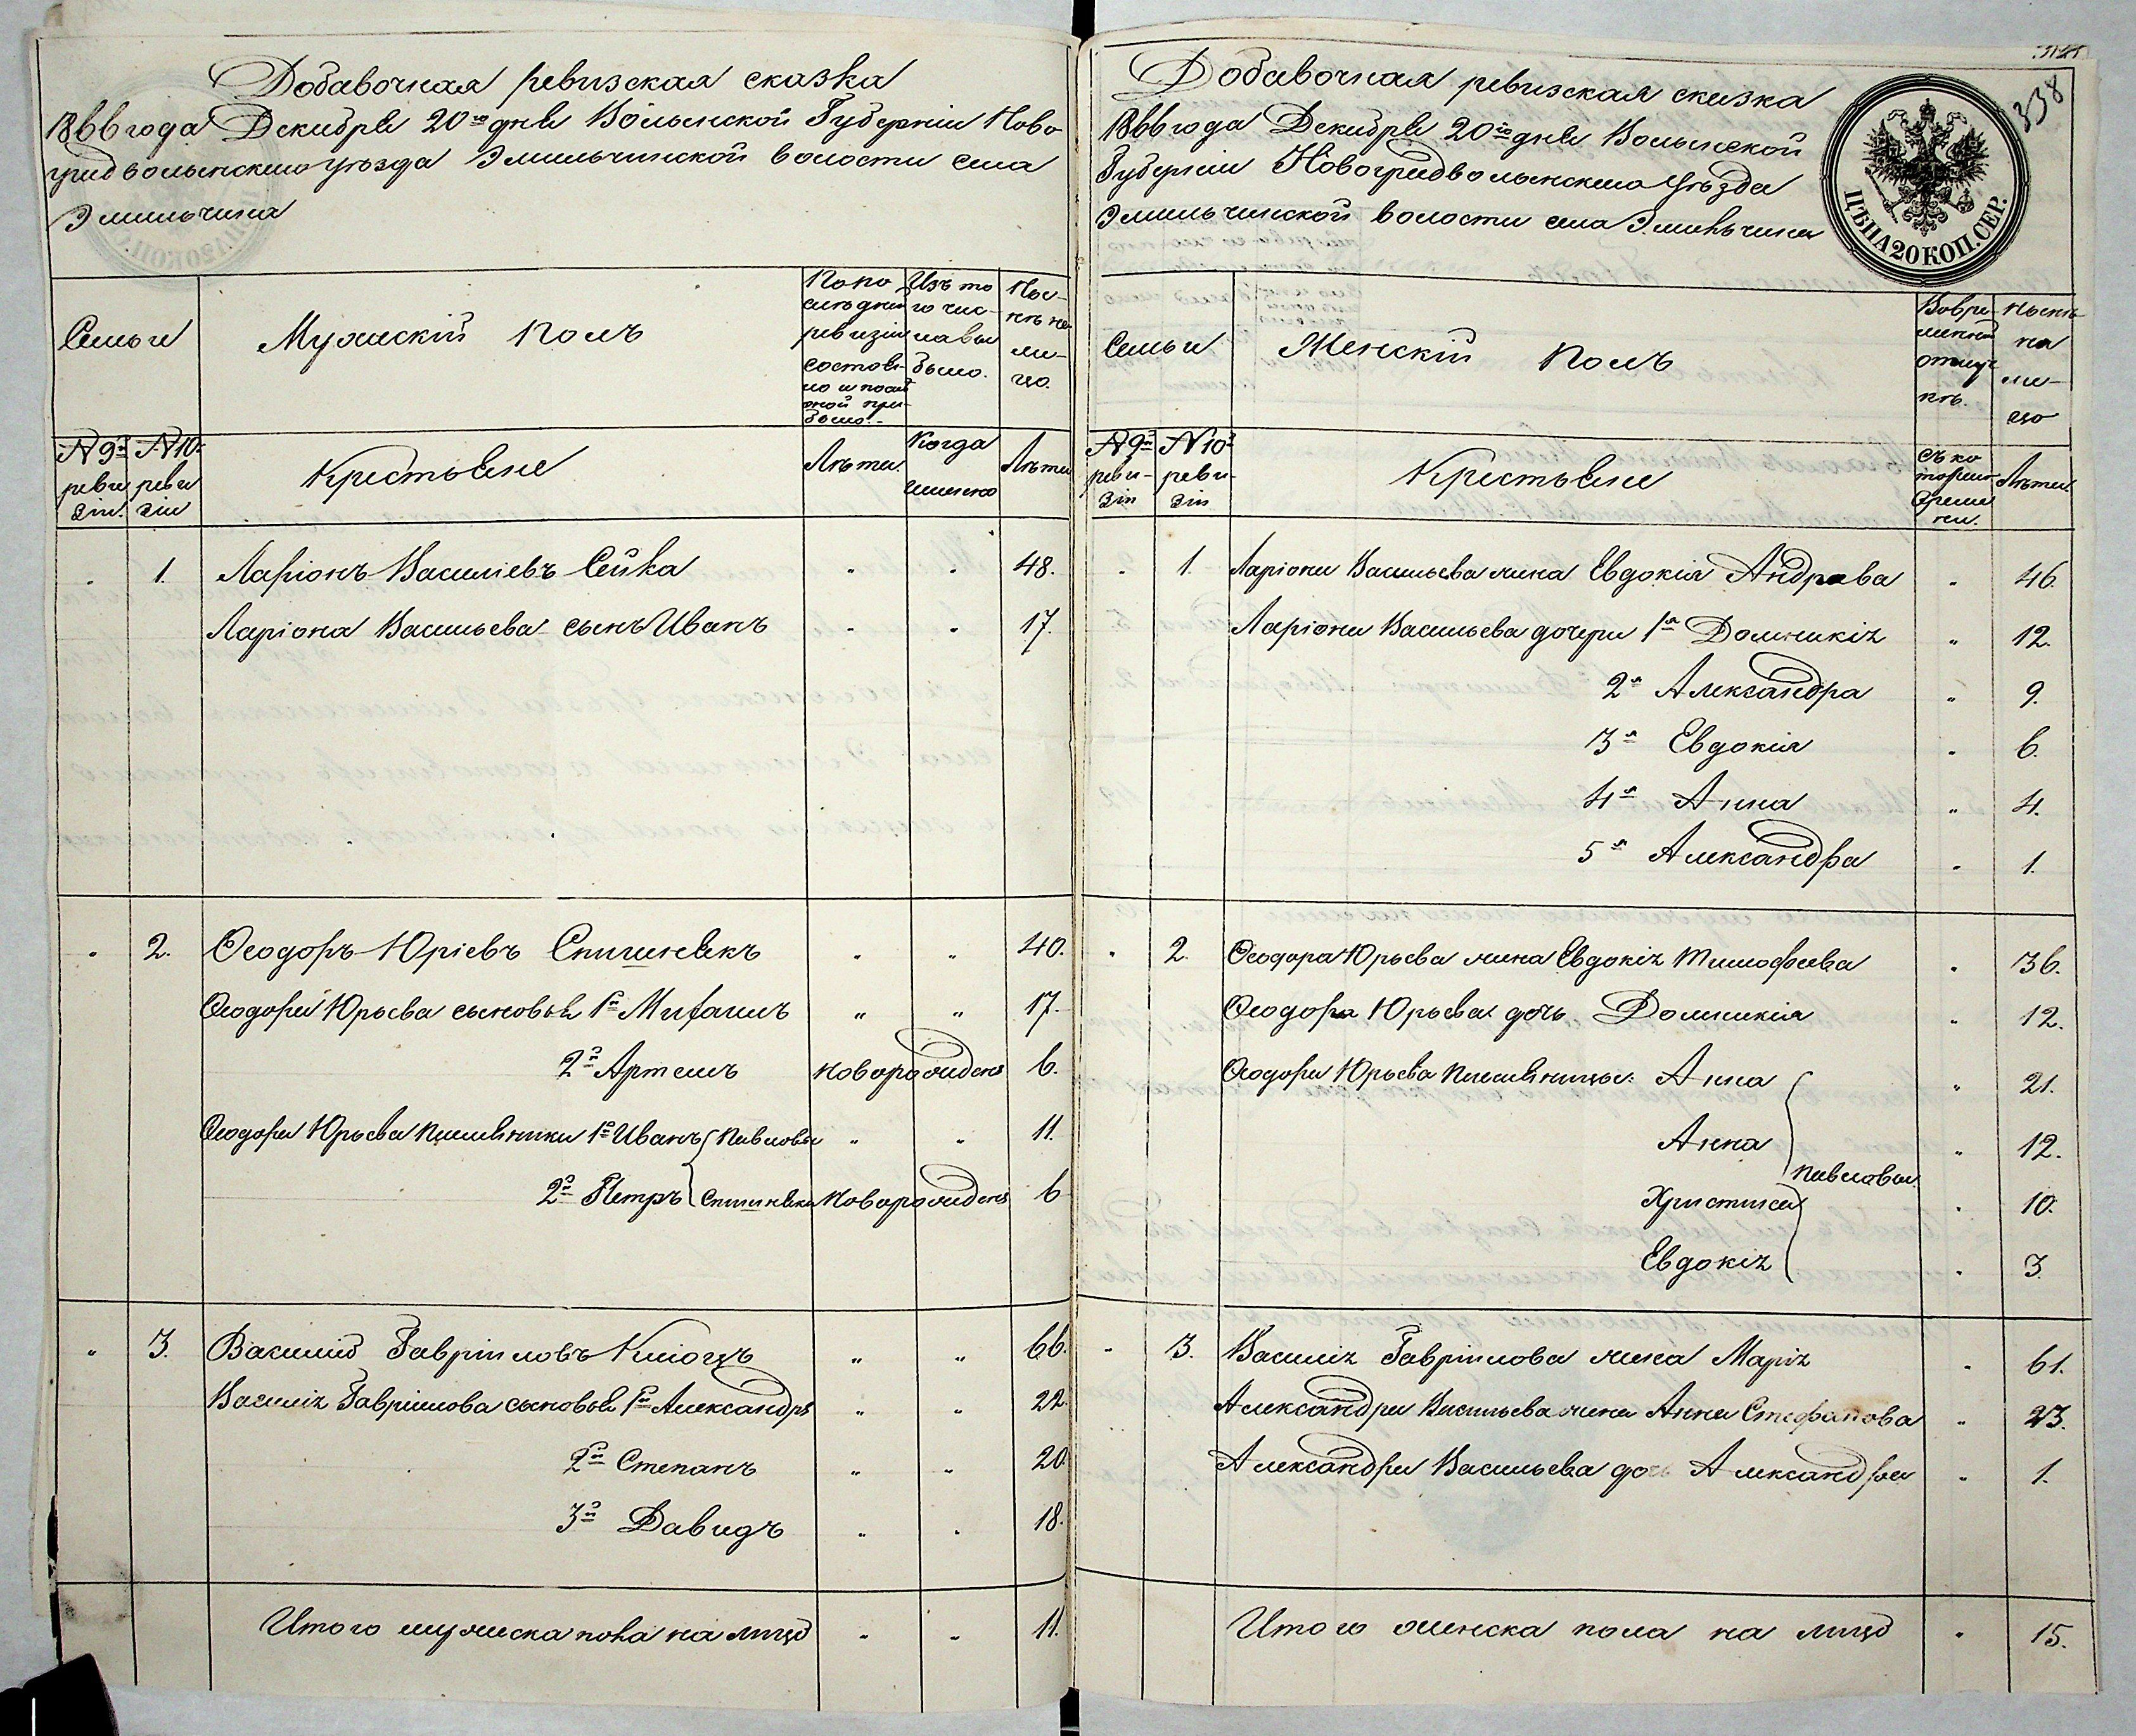 Добавочная ревизская сказка
1866 года Декабря 20го дня Волынской Губерніи Ново
градволынскаго уѣзда Эмильчинской волости села
Эмильчина
Семьи
Мужескій полъ
По по
слѣдней
ревизіи
состоя-
ло и посл
оной при-
было.
Изъ то
го чис-
ла вы
было.
Нынѣ на
ли-
цо.
№ 9й ревизіи.
№ 10й ревизіи
Крестьяне
Лѣта.
Когда именно
Лѣта
" 1. Ларіонъ Василіевъ Сейка " " 48.
Ларіона Васильева сынъ Иванъ " " 17.
" 2. Ѳеодоръ Юріевъ Спишнякъ " " 40.
Ѳеодора Юрьева сыновья 1й Михаилъ " " 17.
2й Артемъ новорожденъ 6.
Ѳеодора Юрьева племянники 1й Иванъ Павловы " " 11.
2й Петръ Спишняки новорожденъ 6
" 3. Василій Гавріиловъ Клюгъ " " 66.
Василія Гавріилова сыновья 1й Александръ " " 22.
2й Степанъ " " 20
3й Давидъ " " 18.
Итого мужеска пола на лицо " " 11.
338
Добавочная ревизская сказка
1866 года Декабря 20го дня Волынской
Губерніи Новоградволынскаго Уѣзда
Эмильчинской волости села Эмильчина
ЦѢНА 20 КОП. СЕР.
Семьи
Женскій полъ
Во вре-
менной
отлуч
кѣ.
Нынѣ
на
ли-
цо
№ 9й ревизіи
№ 10й ревизіи
Крестьяне
Съ ко
тораго
време
ни.
Лѣта.
" 1. Ларіона Васильева жена Евдокія Андреева " 46.
Ларіона Васильева дочери 1я Домникія " 12.
2я Александра " 9.
3я Евдокія " 6.
4я Анна " 4.
5я Александра " 1.
" 2. Ѳеодора Юрьева жена Евдокія Тимофеева " 36.
Ѳеодора Юрьева дочь Домникія " 12.
Ѳеодора Юрьева племянницы: Анна " 21.
Анна " 12.
Павловы.
Христина " 10.
Евдокія " 3.
" 3. Василія Гавріилова жена Марія " 61.
Александра Васильева жена Анна Стефанова " 23.
Александра Васильева дочь Александра " 1.
Итого женска пола на лицо " 15.